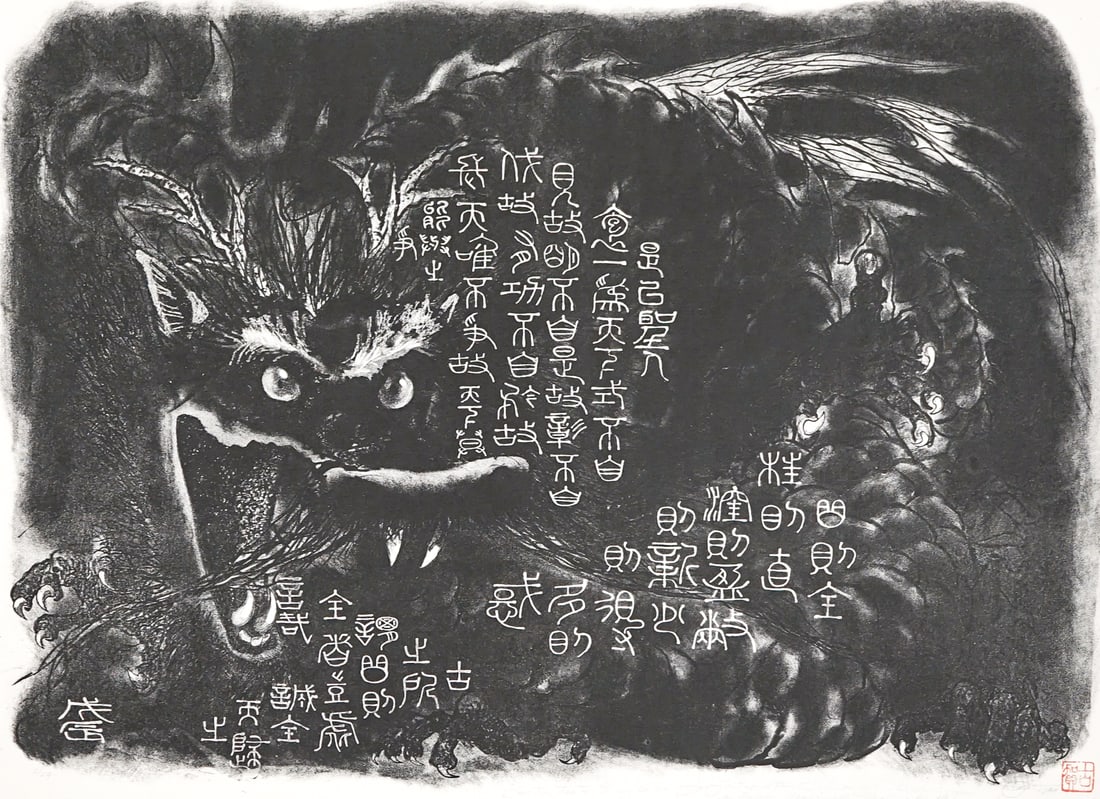 曲則全
枉則直
窪則盈敝
則新少
則得
多則
惑
是以聖人
抱一為天下式不自
見故明不自是故彰不自
伐故有功不自矜故
長夫唯不爭故天下莫
能與之
爭
古
之所
謂曲則
全者豈虛
言哉誠全
而歸
之
戊辰